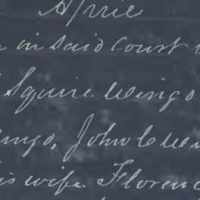 April
in said court
Squire Wingo
ingo, John C Wi
is wife. Florenc